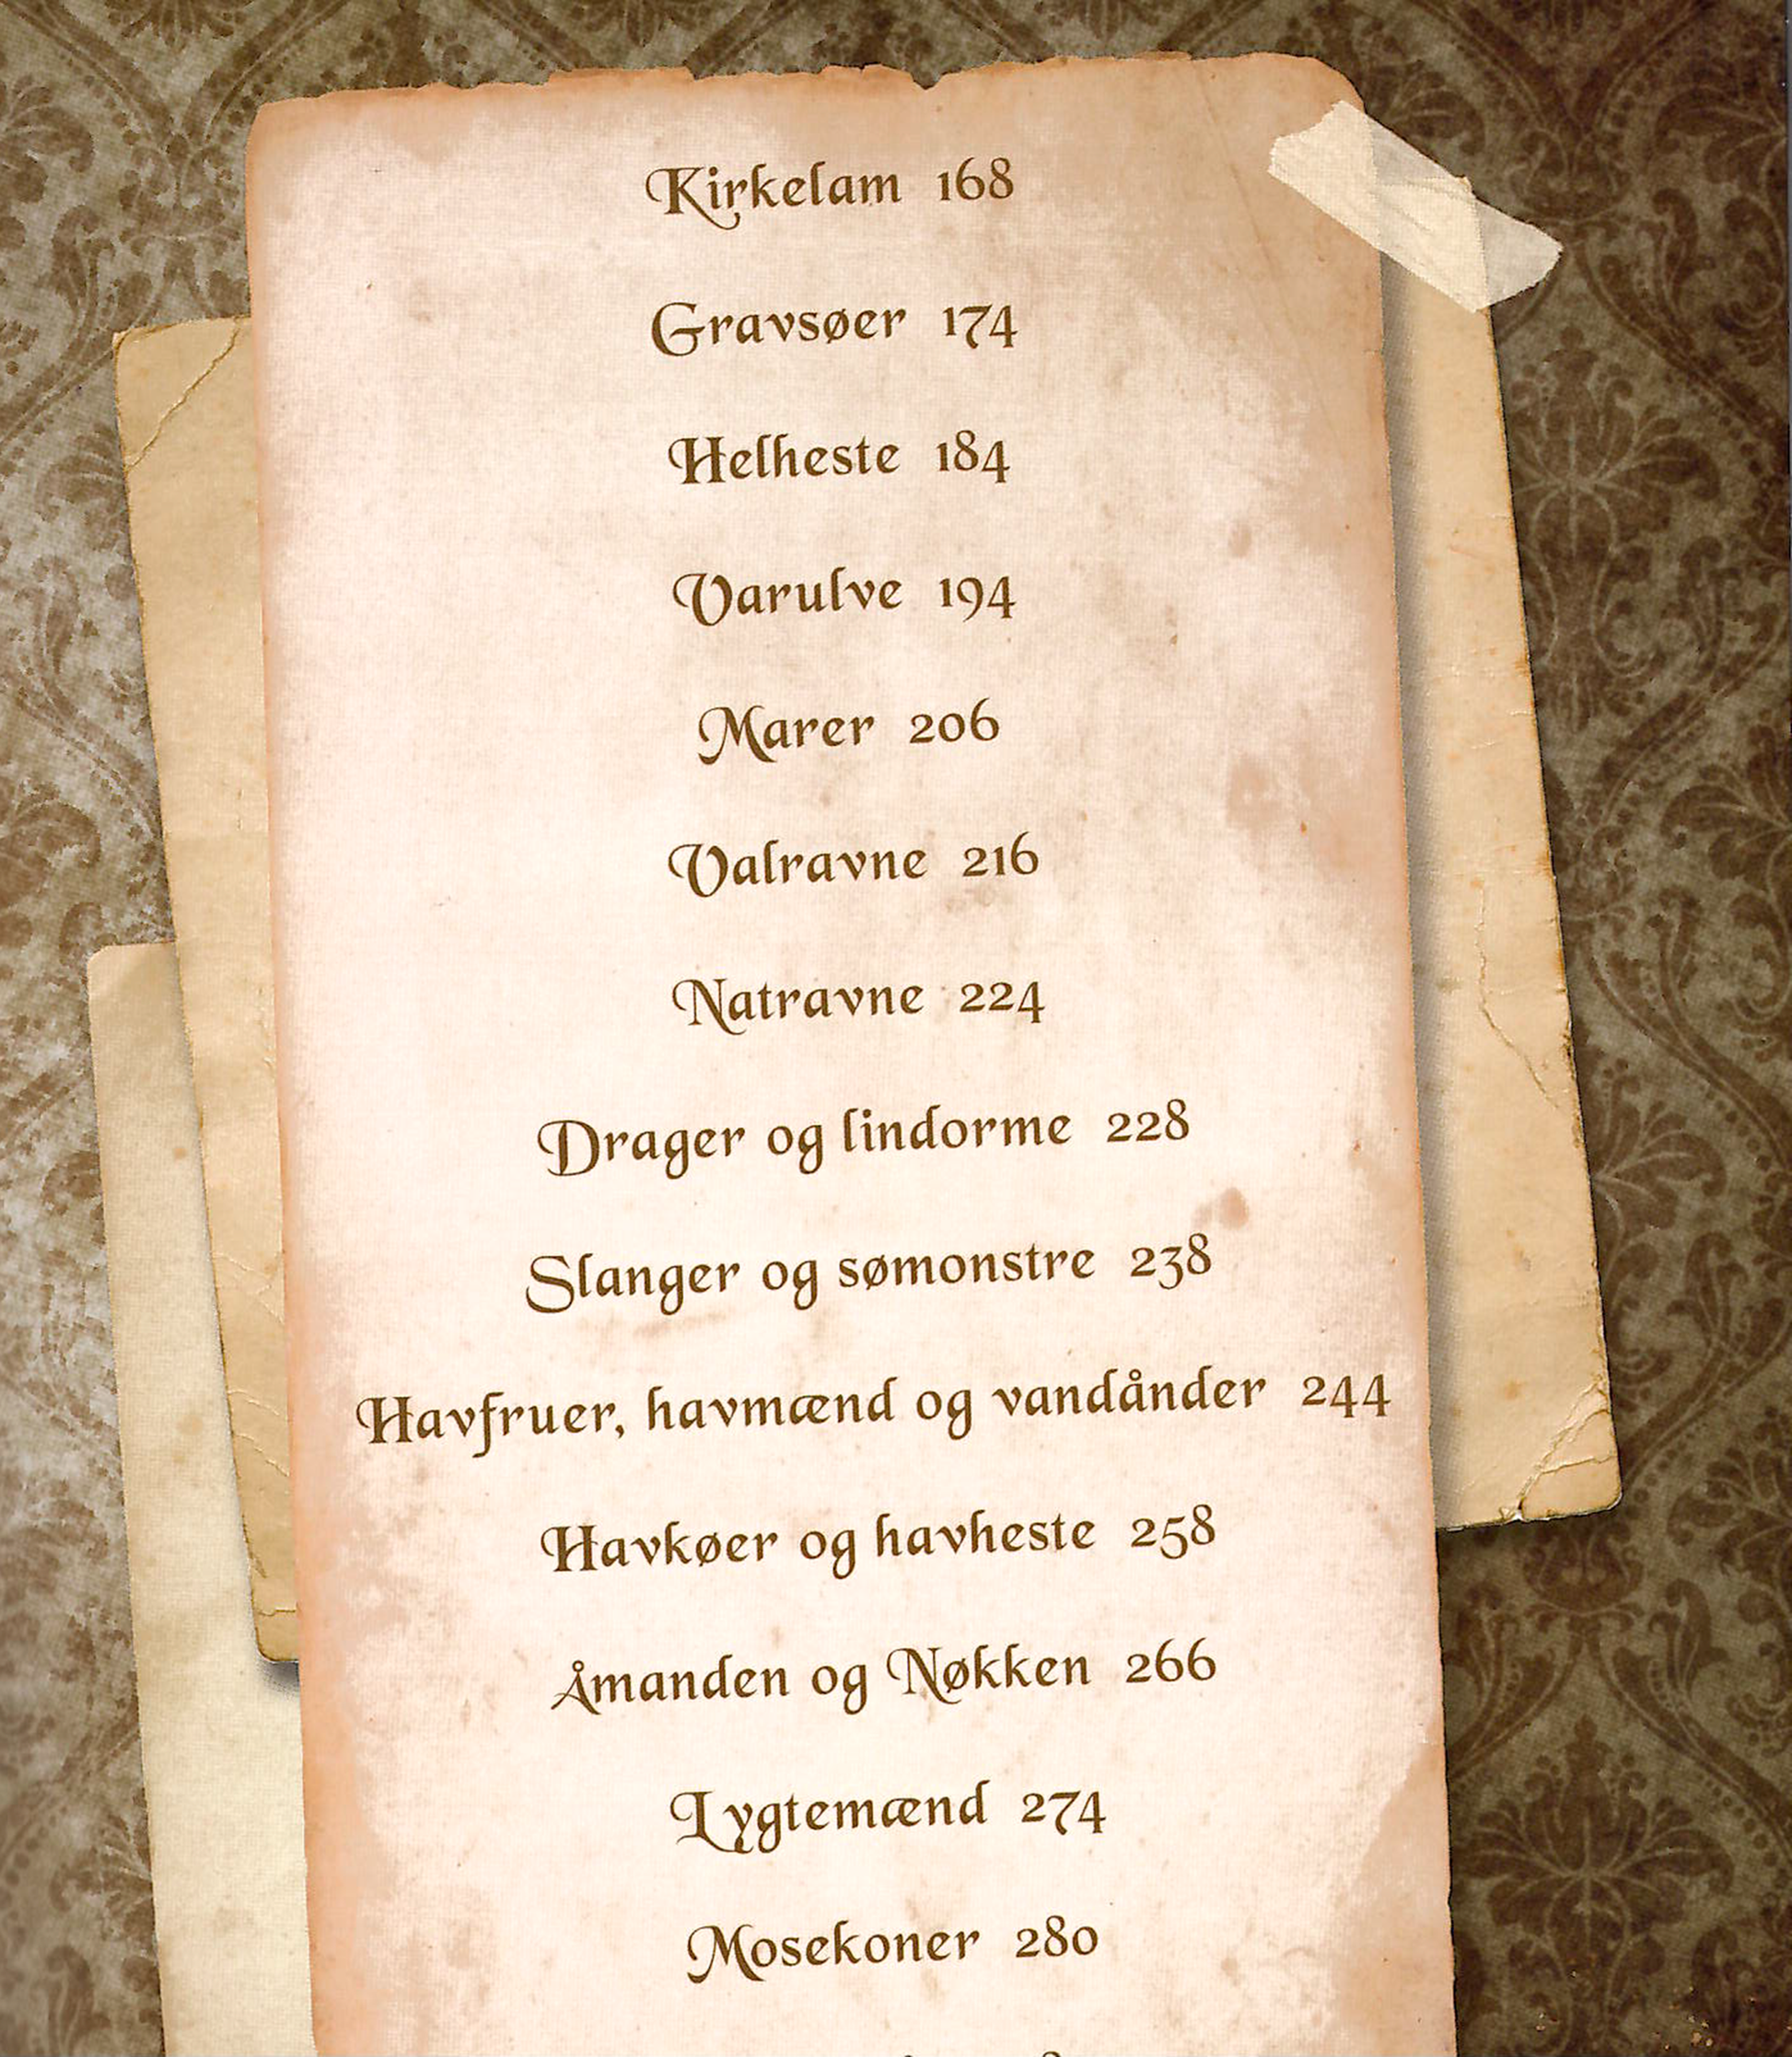 Kirkelam 168
Gravsøer 174
Helheste 184
Varulve 194
Marer 206
Valravne 216
Natravne 224
Drager og lindorme 228
Slanger og sømonstre 238
Havfruer, havmænd og vandånder 244
Havkøer og havheste 258
Åmanden og Nøkken 266
Lygtemænd 274
Mosekoner 280